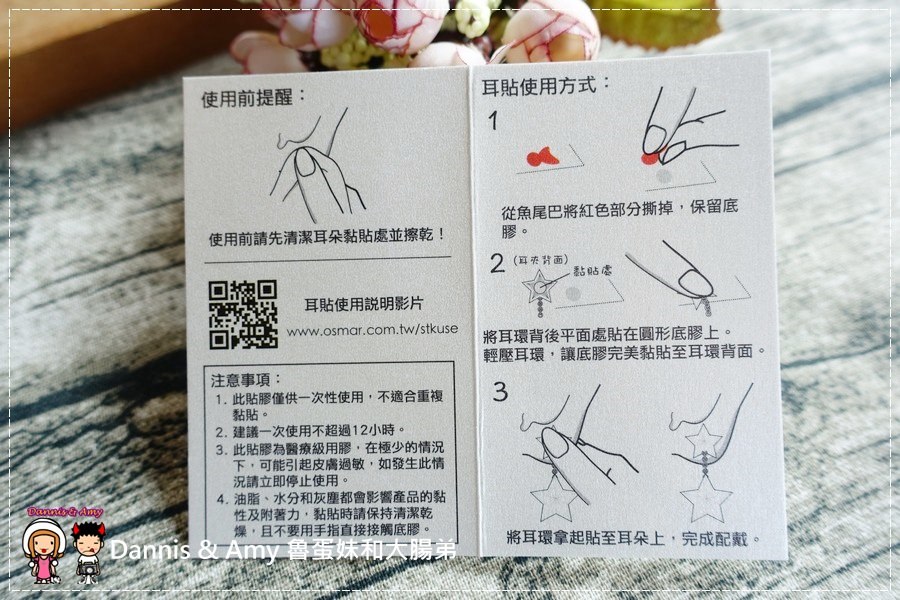 使用前提醒：
使用前請先清潔耳朵黏貼處並擦乾！
耳貼使用説明影片
www.osmar.com.tw/stkuse
注意事項：
1. 此貼膠僅供一次性使用，不適合重複
黏貼。
2. 建議一次使用不超過12小時。
3. 此貼膠為醫療級用膠，在極少的情況
下，可能引起皮膚過敏，如發生此情
況請立即停止使用。
4. 油脂、水分和灰塵都會影響產品的黏
性及附著力，黏貼時請保持清潔乾
燥，且不要用手指直接接觸底膠。
耳貼使用方式：
1
從魚尾巴將紅色部分撕掉，保留底
膠。
2
(耳夾背面)
黏貼處
將耳環背後平面處貼在圓形底膠上。
輕壓耳環，讓底膠完美黏貼至耳環背面。
3
將耳環拿起貼至耳朵上，完成配戴。
Dannis & Amy
Dannis & Amy 魯蛋妹和大腸弟